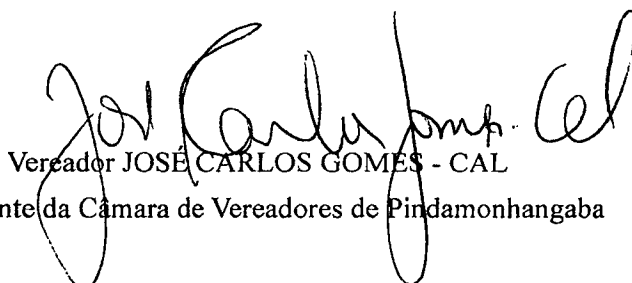 José Carlos Gomes - Cal
Vereador JOSÉ CARLOS GOMES - CAL
nte da Câmara de Vereadores de Pindamonhangaba